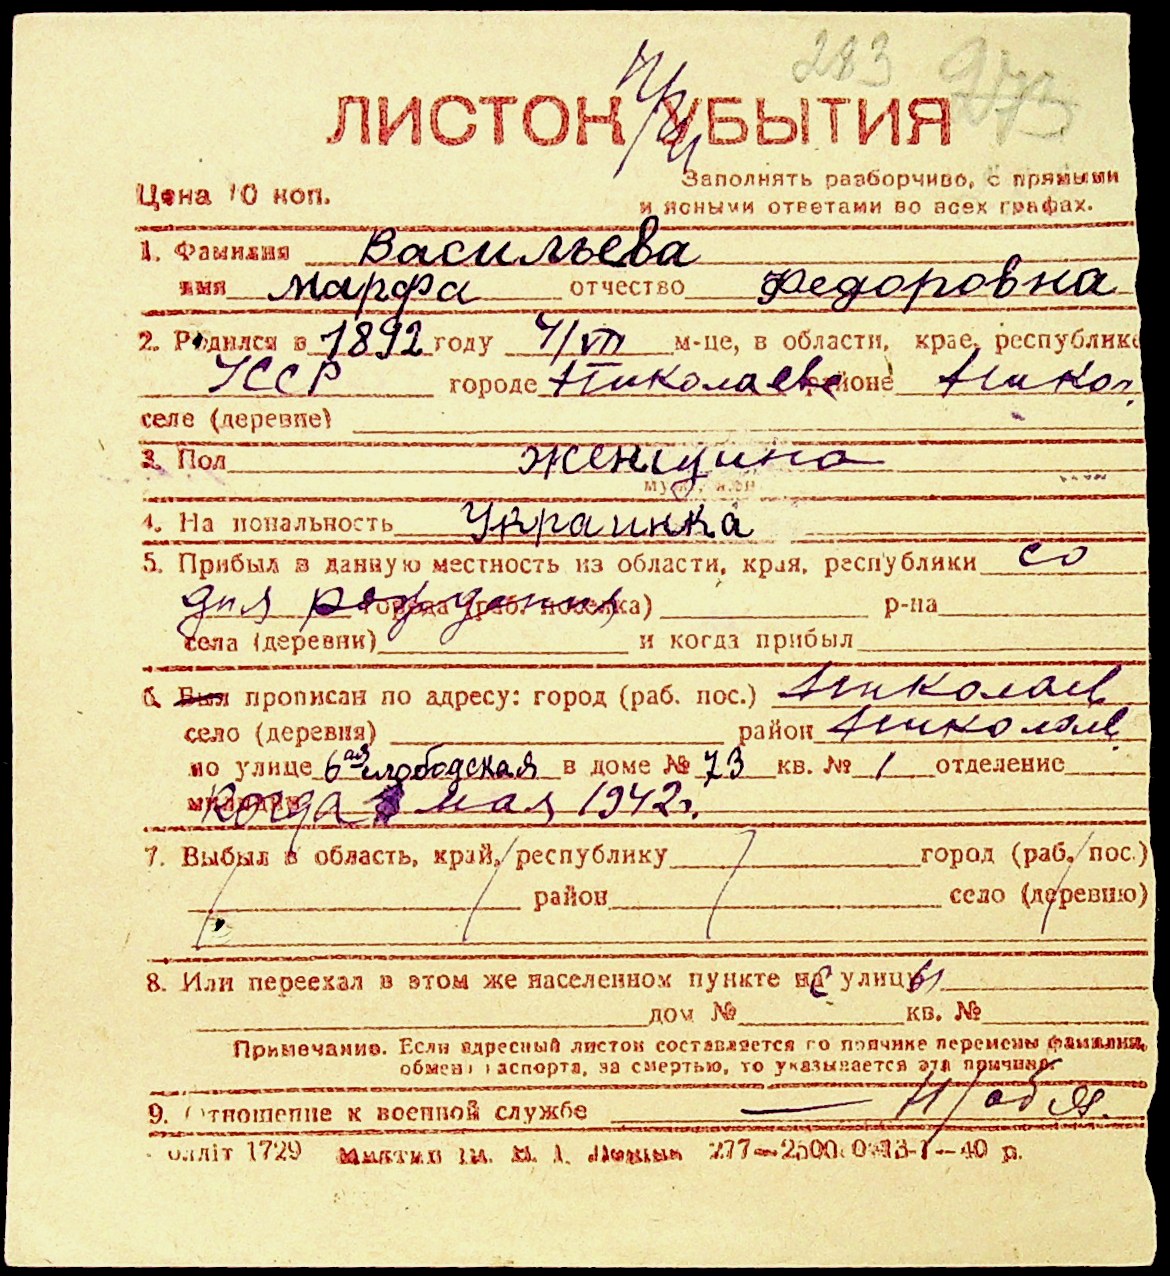 283 273
ЛИСТОК УБЫТИЯ
Цена 10 коп.
Заполнять разборчиво, с прямыми
и ясными ответами во всех графах.
1. Фамилия Васильева
имя Марфа отчество Федоровна
2. Родился в 1892 году 4/VII м-це, в области, крае, республике
УССР городе Николаеве районе Никол.
селе (деревне)
3. Пол женщина
муж., жен.
4. Национальность Украинка
5. Прибыл в данную местность из области, края, республики со
дня рождения города (раб. поселка) р-на
села (деревни) и когда прибыл
6. Был прописан по адресу: город (раб. пос.) Николаев
село (деревня) район Николаев.
по улице 6ая слободская в доме № 73 кв. № 1 отделение
милиции Когда мая 1942г.
7. Выбыл в область, край, республику город (раб. пос.)
район село (деревню)
8. Или переехал в этом же населенном пункте на с улицы
дом № кв. №
Примечание. Если адресный листок составляется по причине перемены фамилии,
обмена паспорта, за смертью, то указывается эта причина.
9. Отношение к военной службе — Н/обяз.
олліт 1729 277—2500 40 р.